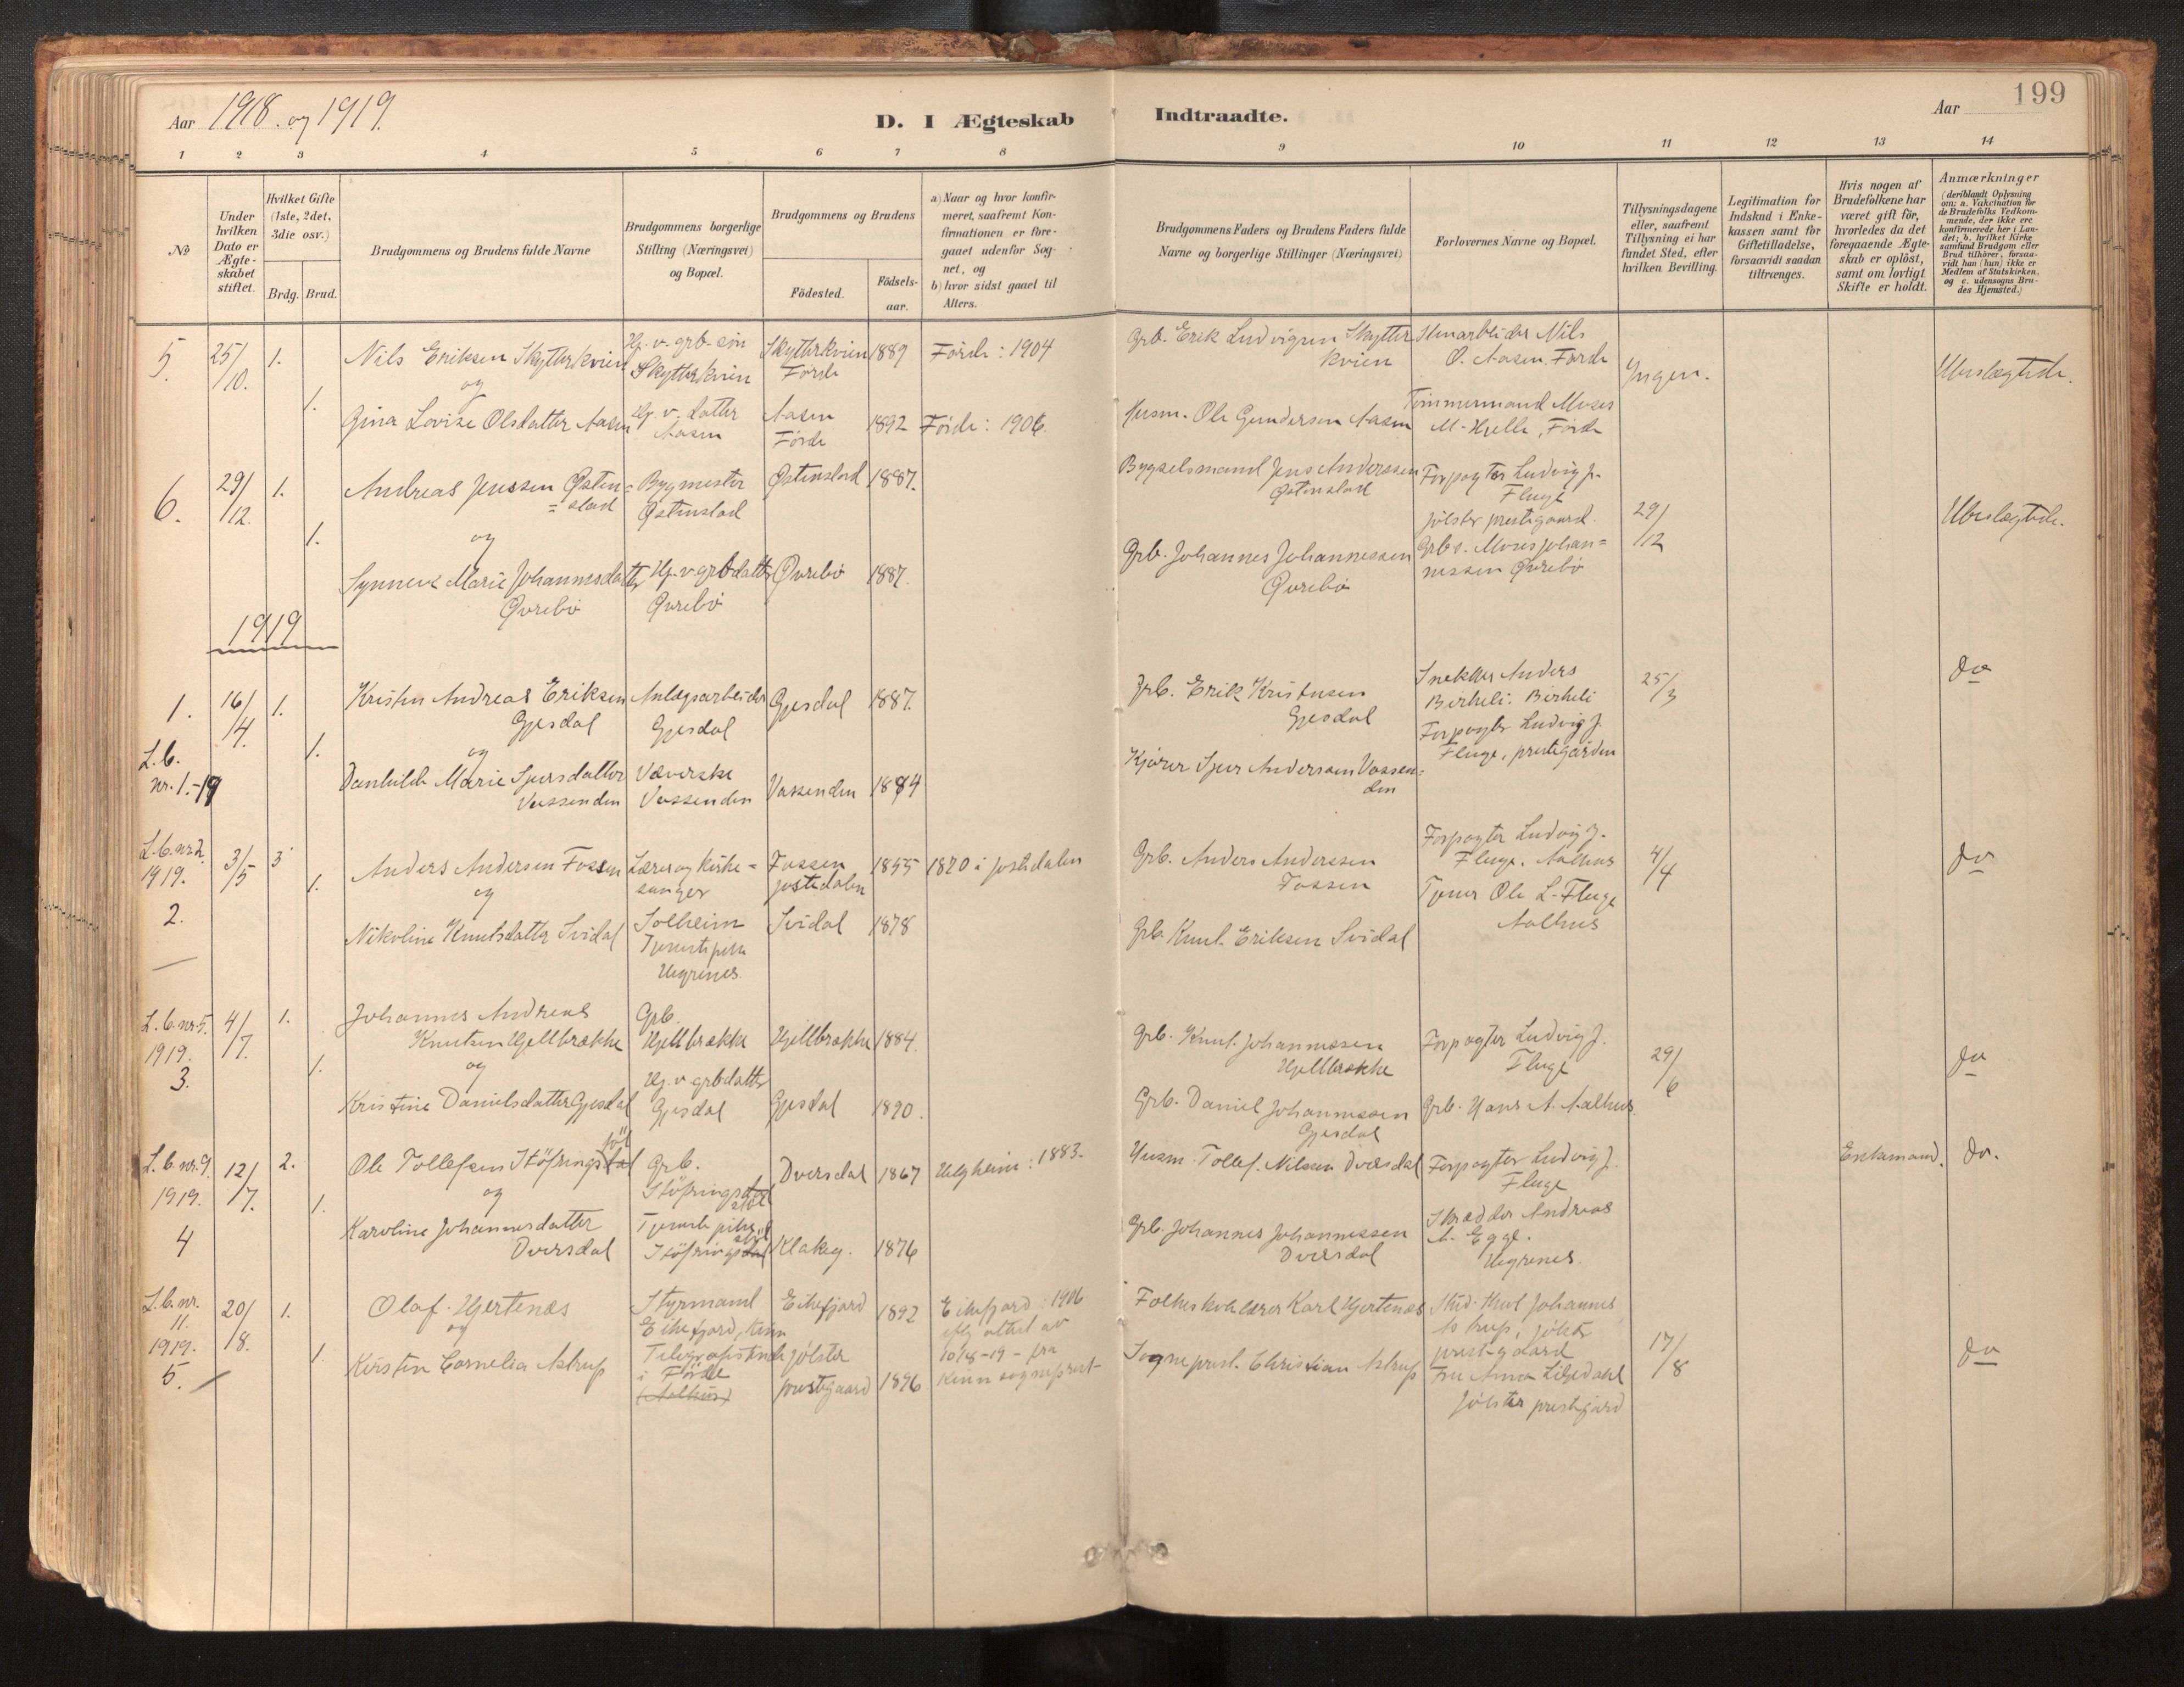 Aar 1918. og 1919.
D. I Ægteskab Indtraadte.
Aar
199
1 2 3 4 5 6 7 8 9 10 11 12 13 14
№
Under hvilken Dato er Ægteskabet stiftet.
Hvilket Gifte (1ste, 2det, 3die osv.)
Brdg. Brud.
Brudgommens og Brudens fulde Navne
Brudgommens borgerlige Stilling (Næringsvei) og Bopæl.
Brudgommens og Brudens
Födested.
Födsels-aar.
a) Naar og hvor konfirmeret, saafremt Konfirmationen er foregaaet udenfor Sognet, og
b) hvor sidst gaaet til Alters.
Brudgommens Faders og Brudens Faders fulde Navne og borgerlige Stillinger (Næringsvei)
Forlovernes Navne og Bopæl.
Tillysningsdagene eller, saafremt Tillysning ei har fundet Sted, efter hvilken Bevilling.
Legitimation for Indskud i Enkekassen samt for Giftetilladelse, forsaavidt saadan tiltrænges.
Hvis nogen af Brudefolkene har været gift för, hvorledes da det foregaaende Ægteskab er oplöst, samt om lovligt Skifte er holdt.
Anmærkninger
(deriblandt Oplysning om: a. Vakcination for de Brudefolks Vedkommende, der ikke ere konfirmerede her i Landet; b. hvilket Kirkesamfund Brudgom eller Brud tilhörer, forsaavidt han (hun) ikke er Medlem af Statskirken, og c. udensogns Brudes Hjemsted.)
5. 25/10. 1. Nils Eriksen Skytterkvien
Hj. v. grb. søn Skytterkvien
Skytterkvien Førde 1889 Førde: 1904
Grb. Erik Ludvigsen Skytterkvien
Stenarbeider Nils O. Aasen. Førde
Ingen. Ubeslægtede.
og
1. Gina Lovise Olsdatter Aasen
Hj. v. datter Aasen
Aasen Førde 1892 Førde: 1906.
Husm. Ole Gundersen Aasen
Tømmermand Moses M. Hjelle, Førde
6. 29/12. 1. Andreas Jenssen Østen=
=stad
Bygmester Østenstad
Østenstad 1887.
Bygselsmand Jens Anderssen Østenstad
Forpagter Ludvig J. Fluge
Jølster prestegaard.
29/12 Ubeslægtede.
og
1. Synneve Marie Johannesdatter Øvrebø
Hj. v. grbdatter Øvrebø
Øvrebø 1887.
Grb. Johannes Johannessen Øvrebø
Grbs. Moses Johan=
nessen Øvrebø
1919
1. 16/4. 1. Kristen Andreas Eriksen Gjesdal
Anlægsarbeider Gjesdal
Gjesdal 1887.
Grb. Erik Kristensen Gjesdal
Snekker Anders Birkeli. Birkeli
25/3 do
L.b. nr. 1.-19
og
1. Danhilde Marie Sjursdatter Vassenden
Væverske Vassenden
Vassenden 1884
Kjører Sjur Anderssen Vassen=
den
Forpagter Ludvig J. Fluge, prestegården
L.b. nr 2. 1919. 3/5 3 Anders Andersen Fossen
Lærer og kirke=
sanger Solheim
Fossen Jostedalen 1855 1870 i Jostedalen
Grb. Anders Anderssen Fossen
Forpagter Ludvig J. Fluge. Aalhus
4/4 do
og
2. 1. Nikoline Knutsdatter Svidal
Tjenestepike Helgrenes.
Svidal 1878
Grb. Knut Eriksen Svidal
Tjener Ole L. Fluge Aalhus
L.b. nr. 5. 1919. 4/7. 1. Johannes Andreas Knutsen Hjelbrække
Grb. Hjelbrække
Hjelbrække 1884.
Grb. Knut Johannessen Hjelbrække
Forpagter Ludvig J. Fluge
29/6 do
og
3. 1. Kristine Danielsdatter Gjesdal
Hj. v. grbdatter Gjesdal
Gjesdal 1890.
Grb. Daniel Johannessen Gjesdal
Grb. Hans A. Aalhus
L.b. nr. 9. 1919. 12/7. 2. Ole Tollefsen Støfringsdal
Grb. Støfringstøl
Dvergsdal 1867 Helgheim: 1883.
Husm. Tollef. Nilssen Dvergsdal
Forpagter Ludvig J. Fluge
Enkemand. do.
og
4 1. Karoline Johannesdatter Dvergsdal
Tjenestepike Støfringsdal
Klakeg. 1876
Grb. Johannes Johannessen Dvergsdal
Skrædder Andreas A. Egge. Helgrenes.
L.b. nr. 11. 1919. 20/8. 1. Olaf Hjertenæs
Styrmand Eikefjord, Kinn
Eikefjord 1892 Eikefjord: 1906
iflg attest av 10/8-19 - fra Kinn sogneprest
Folkeskolelærer Karl Hjertenæs
Stud. theol Johannes Astrup, Jølster prestegaard
17/8 do
og
5. 1. Kirsten Cornelia Astrup
Telegrafistinde i Førde (Aalhus)
Jølster prestegaard 1896
Sogneprest. Christian Astrup
Fru Anna Liljedahl Jølster prestgård